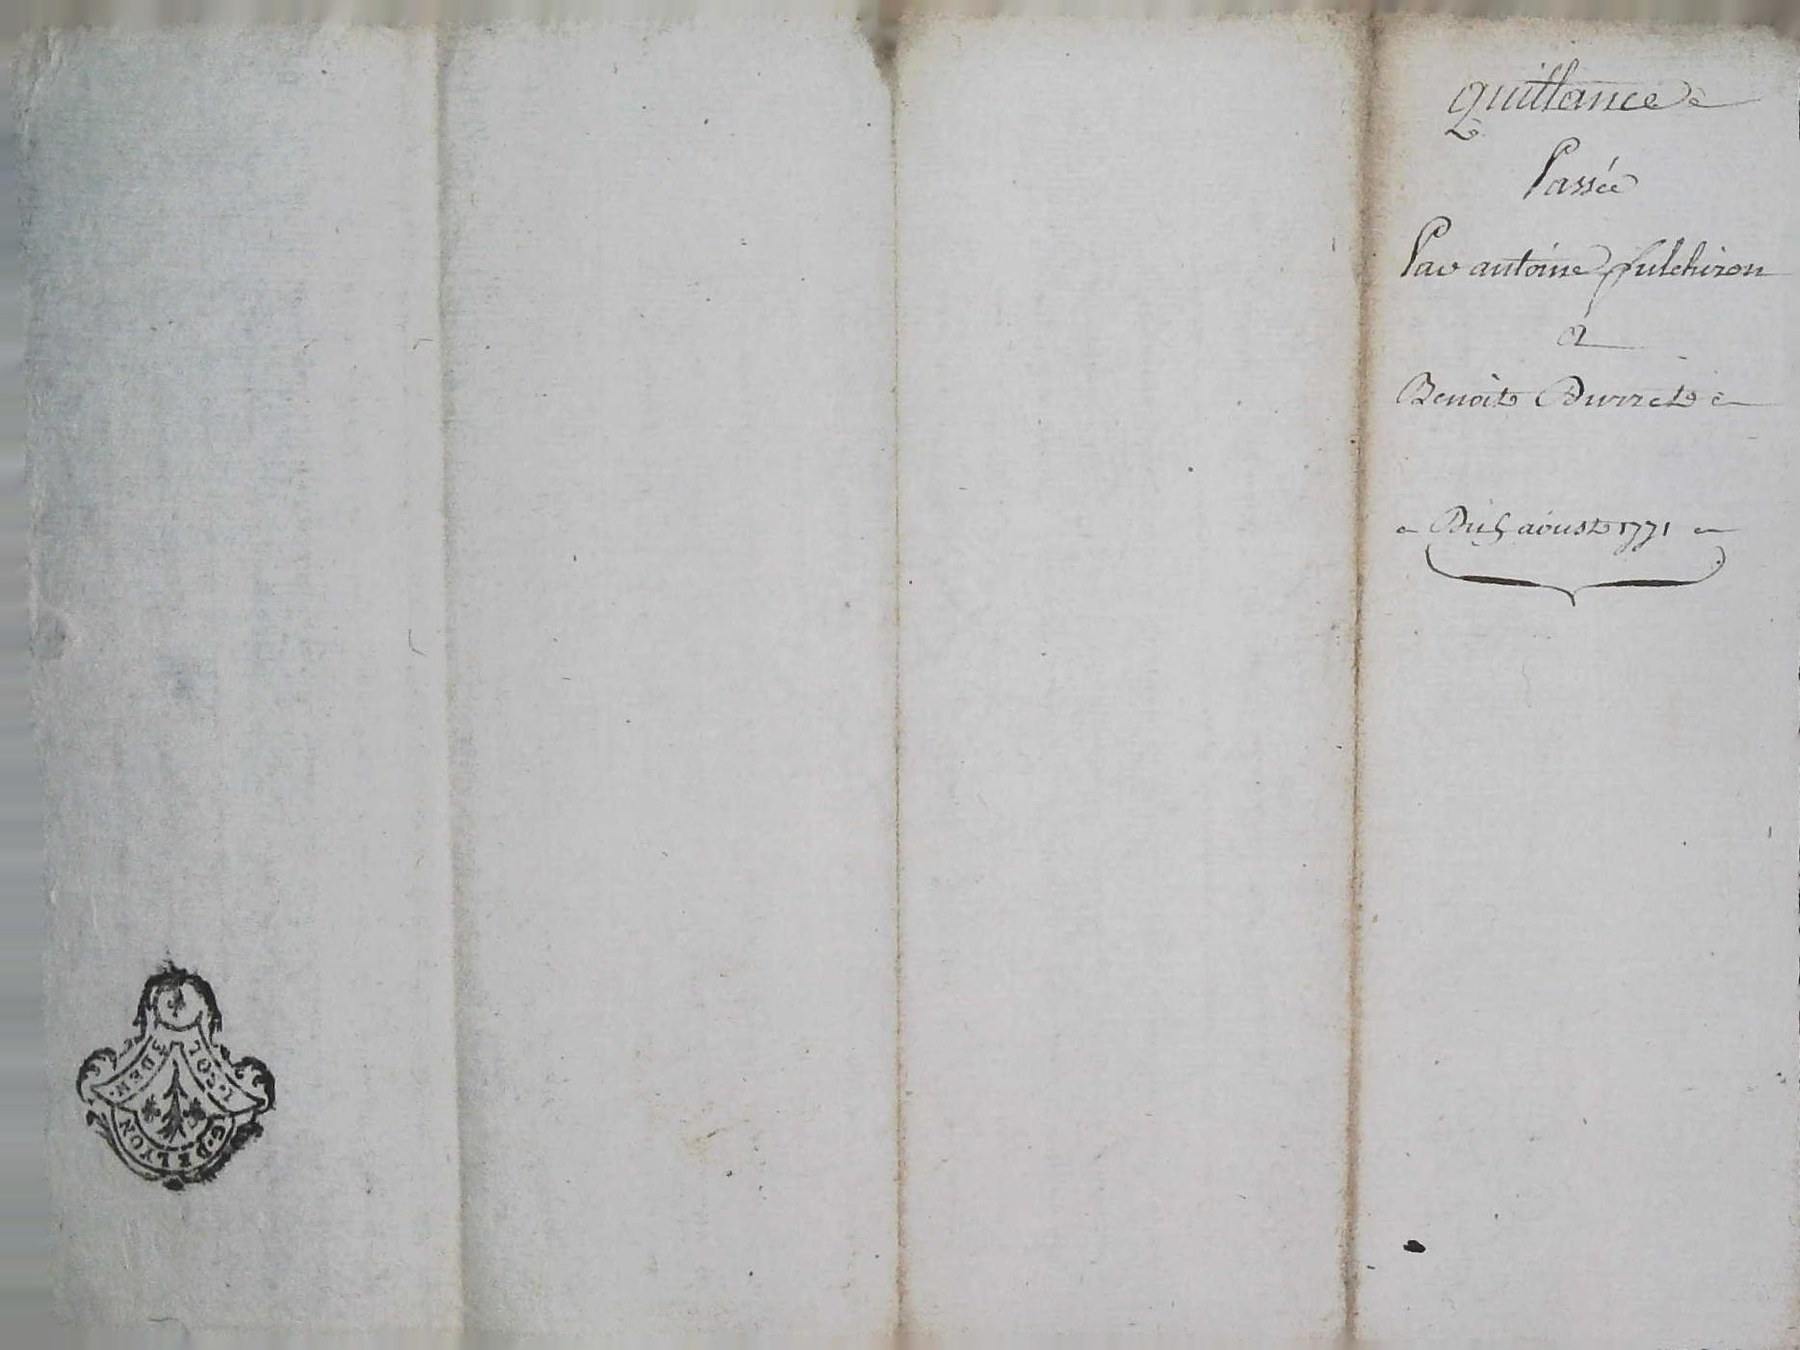 quittance
Passée
Par antoine fulchiron
a
Benoit Durret
Du 5 aoust 1771
1·SOL
3 DEN·
G·DE LYON